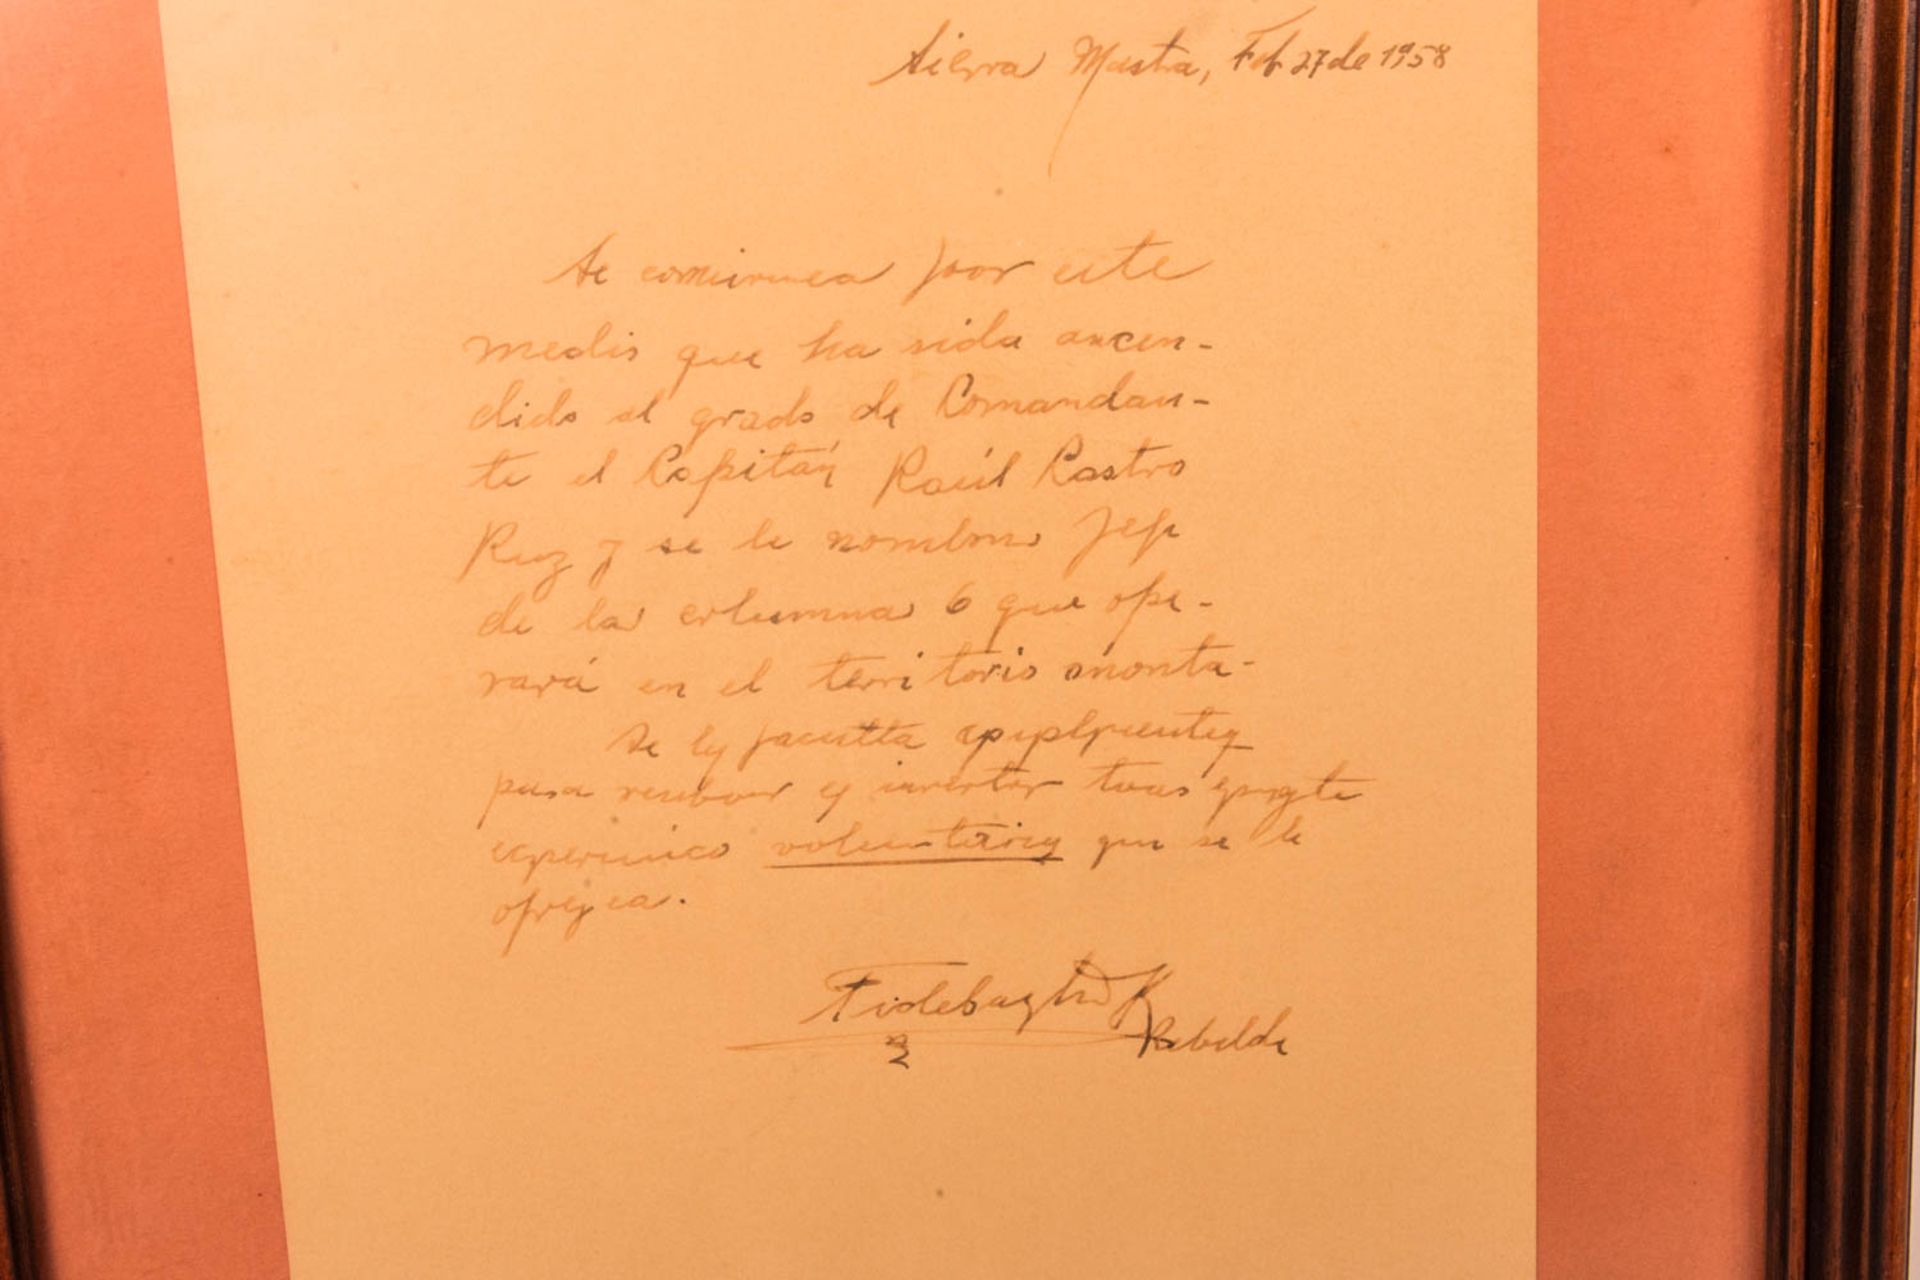 Sierra Mastra, Feb 27 de 1958
Se comunica por este
medio que ha sido ascen-
dido al grado de Comandan-
te el Capitán Raúl Castro
Ruz y se le nombra Jefe
de la columna 6 que ope-
rará en el territorio monta-
Se le faculta
para y invertir
voluntaria que se le
ofrezca.
Fidel Castro R
Rebelde